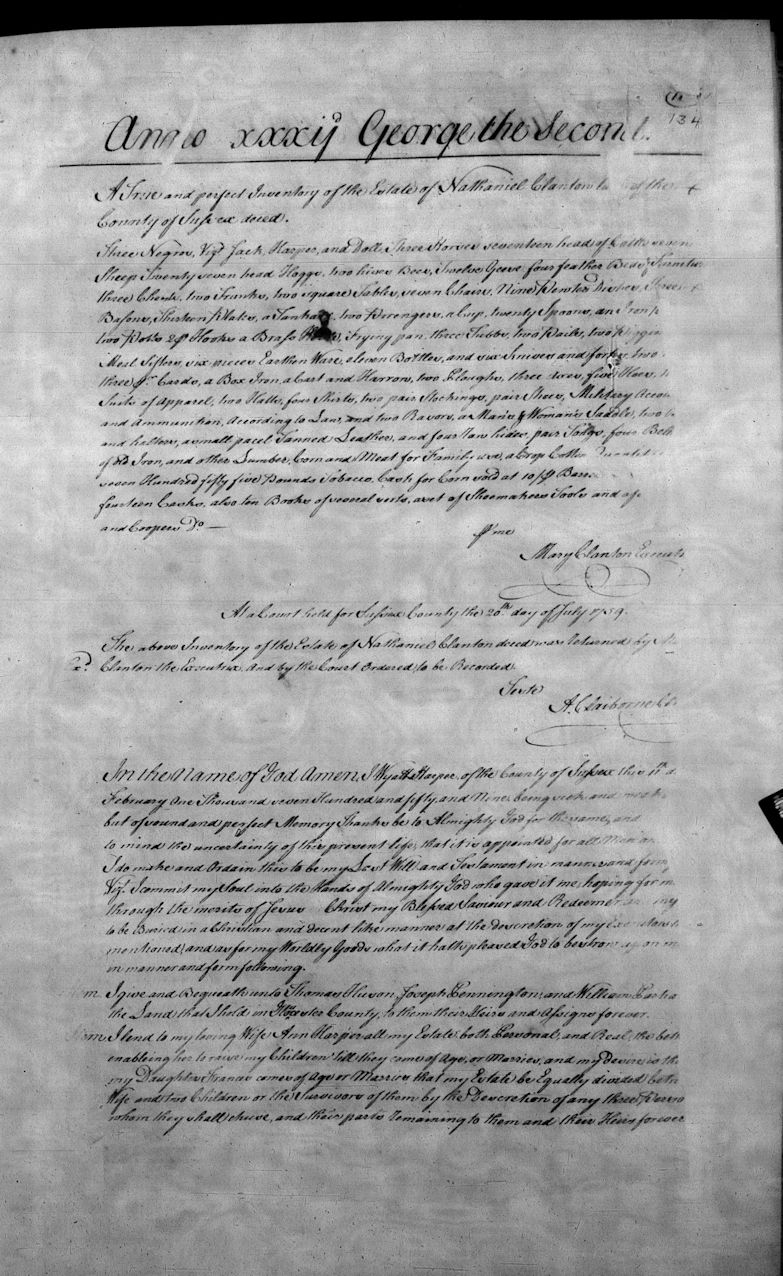 134
Anno xxxij George the Second.
A True and perfect Inventory of the Estate of Nathaniel Clanton of the
County of Sussex deced.
Three Negros, Vizt Jack, Harper, and Doll, Three Horses seventeen head of Cattle seven
Sheep Twenty seven head Hoggs, two hives Bees, Twelve Geese four feather Beds &
three Chests, two Trunks, two square Tables, seven Chairs, Nine Pewter Dishes, Three
Basons, Thirteen Plates, a Tankard, two Porrengers, a Cup, twenty Spoons, an Iron
two Potts 2 pr Hooks a Brass Frying pan, three Tubbs, two Pails, two
Meal Sifters, six pieces Earthen Ware, eleven Bottles, and six knives and forks, two
three pr Cards, a Box Iron, a Cart and Harrow, two Ploughs, three axes, five Hoes,
Suits of Apparel, two Hatts, four Shirts, two pair Stockings, pair Shoes, Military
and Ammunition, According to Law, and two Razors, a Mans & Womans Saddle, two
and halters, a small pacel Tanned Leather, and four raw hides, pair four
of old Iron, and other Lumber, Corn and Meat for Family use, a Crop Cotton
seven Hundred fifty five Pounds Tobacco. Cash for Corn sold at 10/
fourteen Casks, also ten Books of several sorts, a set of Shoemakers Tools and
and Coopers Do
pr me
Mary Clanton
At a Court held for Sussex County the 20th day of July 1759.
The above Inventory of the Estate of Nathaniel Clanton deced was Returned by
Clanton the Executrix. And by the Court Ordered to be Recorded.
Teste
A. Claiborne
In the Name of God Amen, I Wyatt Harper, of the County of Sussex this
February One Thousand seven Hundred and fifty and Nine being sick and
but of sound and perfect Memory Thanks be to Almighty God for the same, and
to mind the uncertainty of this present life, that it is appointed for all Men
I do make and Ordain this to be my Last Will and Testament in manner and form
Vizt I commit my Soul into the Hands of Almighty God who gave it me, hoping for
through the merits of Jesus Christ my Blessed Saviour and Redeemer my
to be Buried in a Christian and decent like manner at the descretion of my
mentioned, and as for my Worldly Goods what it hath pleased God to bestow upon
in manner and form following.
I give and Bequeath unto Thomas Huson, Joseph Pennington, and William
the Land that I hold in County, to them their Heirs and Assigns forever.
I lend to my loving Wife Ann Harper all my Estate both Personal, and Real, the
enabling her to raise my Children till they come of Age, or Marries, and my desire is
my Daughter Frances comes of Age or Marries that my Estate be Equally divided
Wife and two Children or the Survivors of them by the Descretion of any three
whom they shall chuse, and their parts remaining to them and their Heirs forever